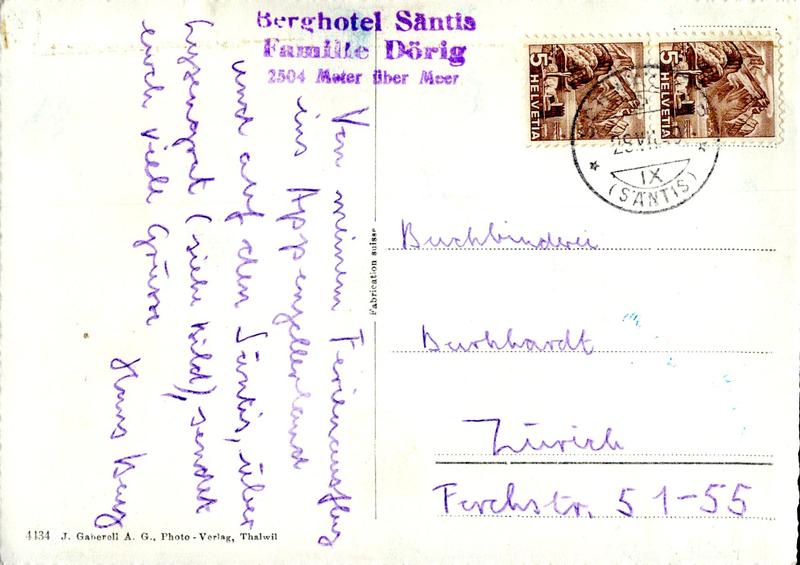 Berghotel Säntis
Familie Dörig
2504 Meter über Meer
Von meinem Ferienausflug
ins Appenzellerland
und auf den Säntis, über
Lysengrat (siehe Bild), sendet
euch viele Grüsse
Hans
5 HELVETIA
5 HELVETIA
IX
(SÄNTIS)
Buchbinderei
Burkhardt
Zürich
Forchstr. 51-55
Fabrication suisse
4134 J. Gaberell A. G., Photo-Verlag, Thalwil